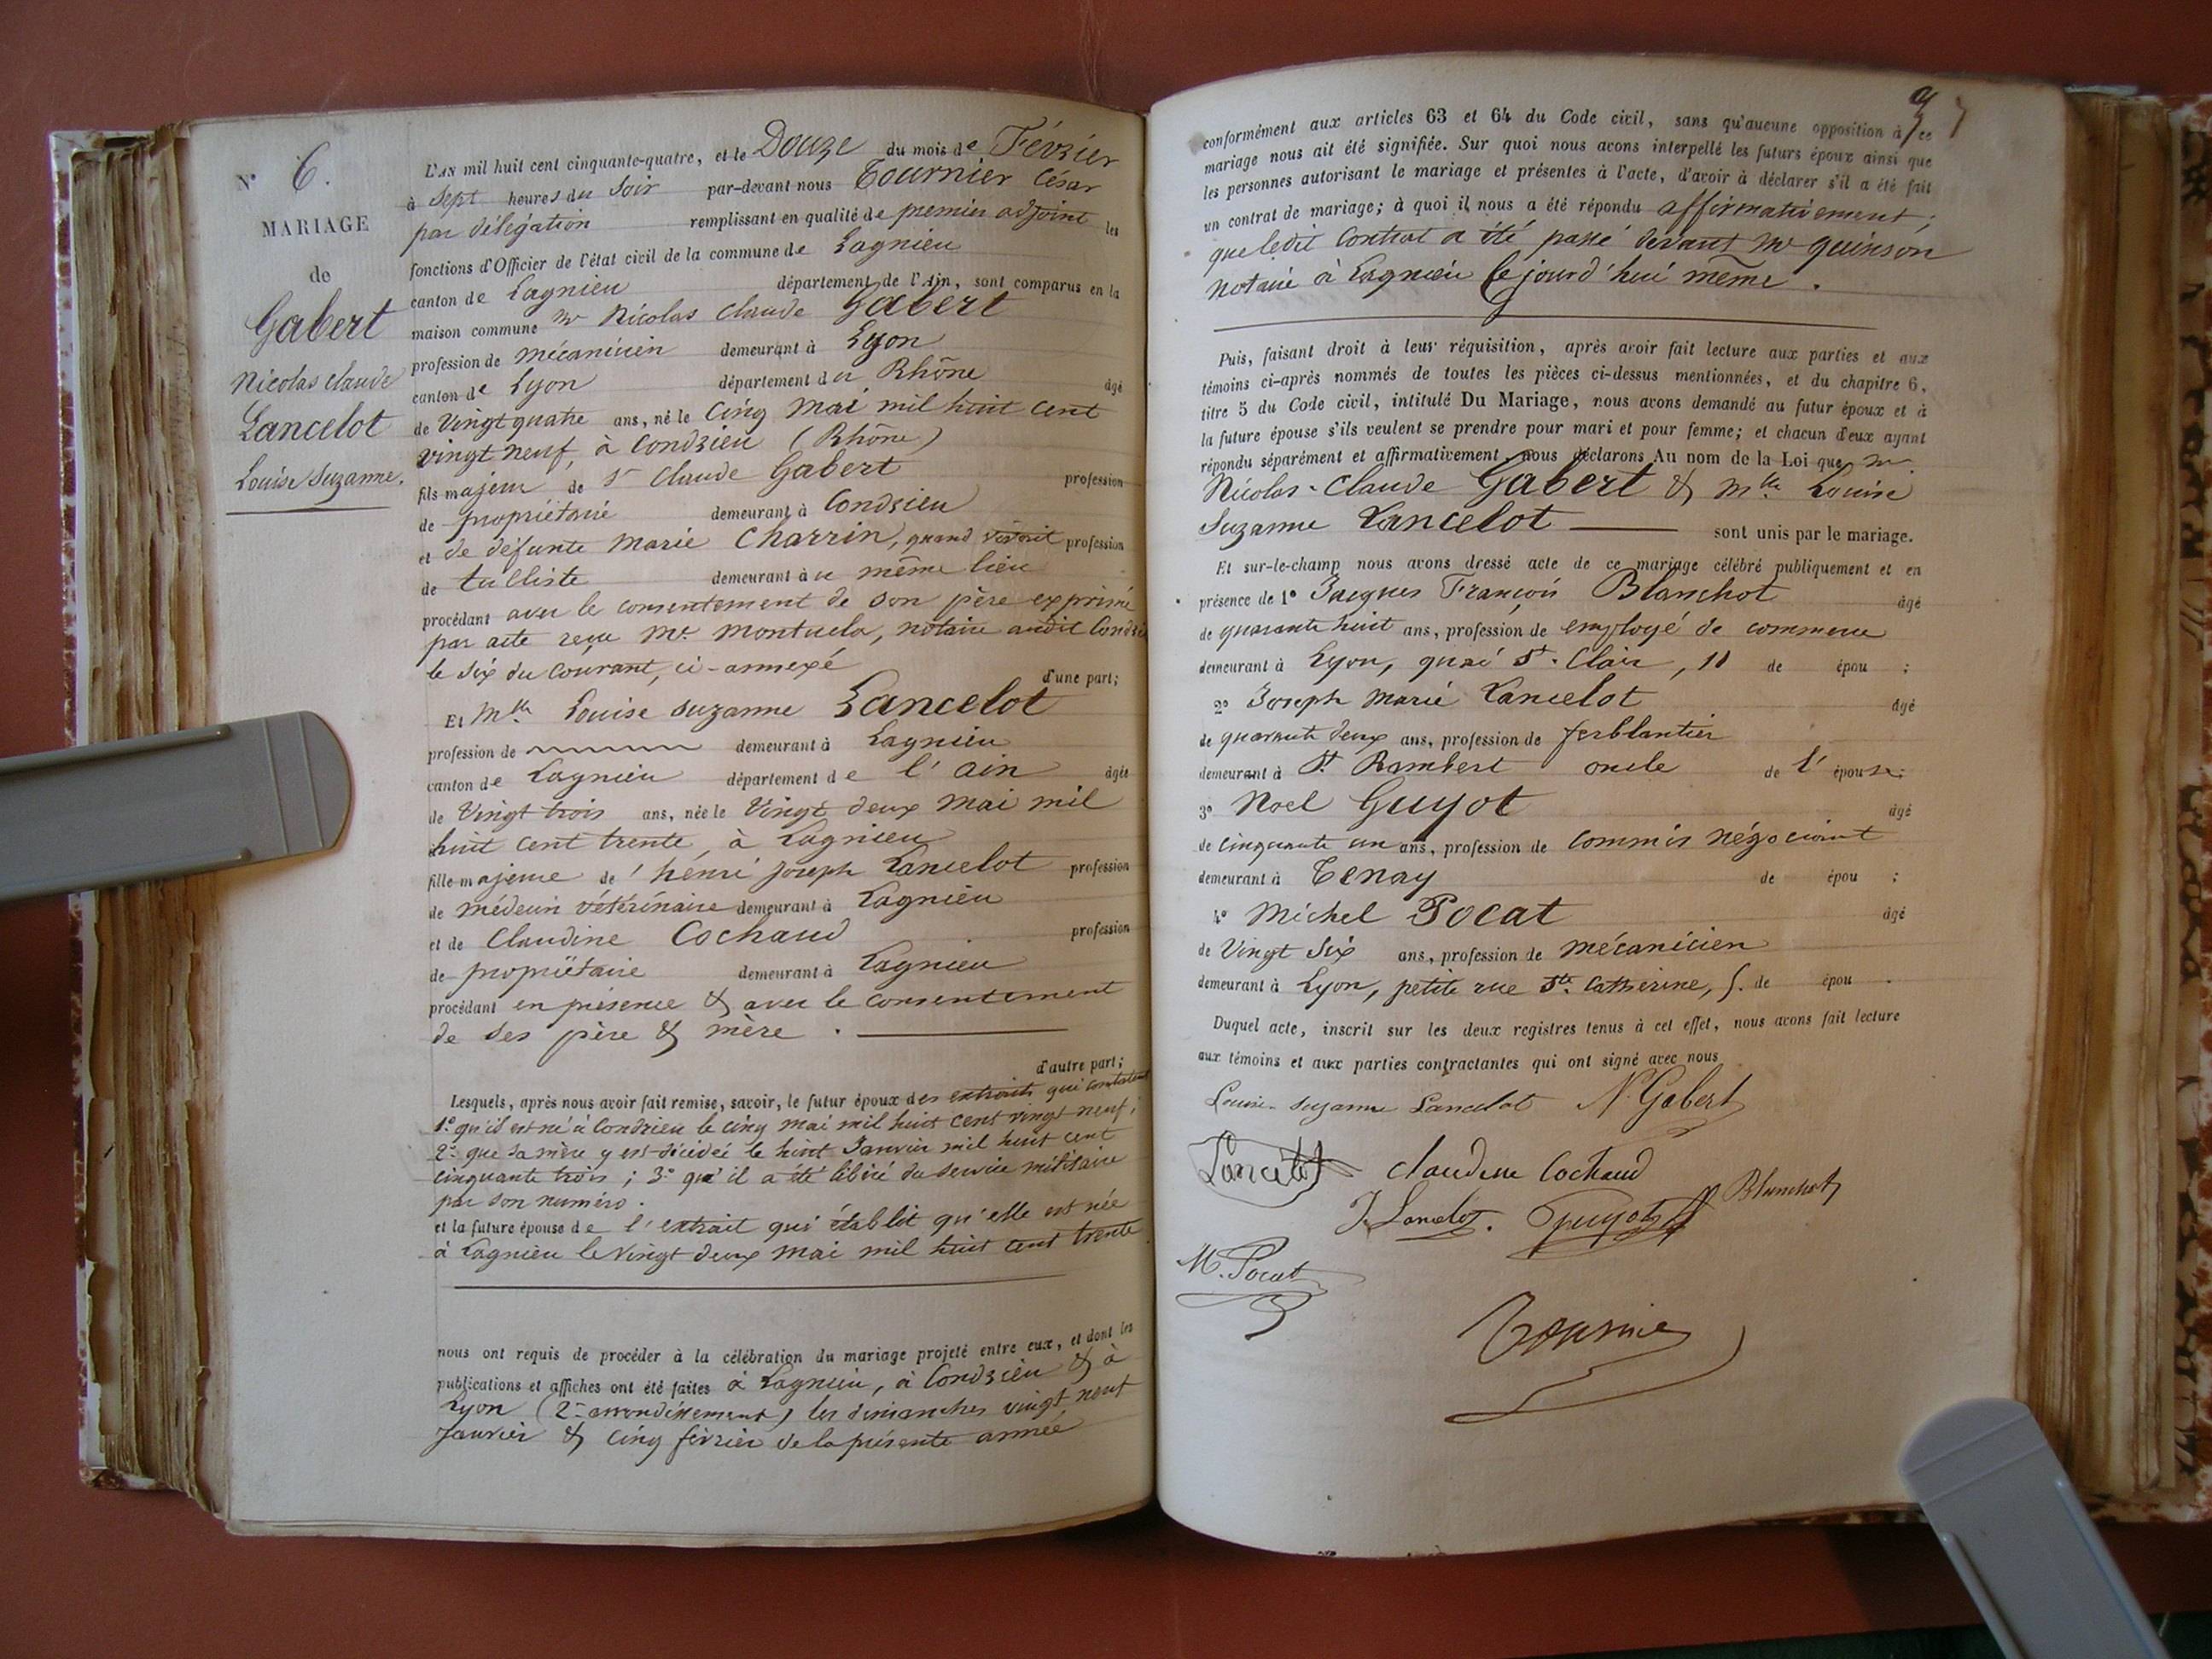 N° 6.
MARIAGE
de
Gabert
Nicolas Claude
Lancelot
Louise Suzanne.
L'AN mil huit cent cinquante-quatre, et le Douze du mois de Février
à Sept heures du Soir par-devant nous Tournier César
par délégation remplissant en qualité de premier adjoint les
fonctions d'Officier de l'état civil de la commune de Lagnieu
canton de Lagnieu département de l'Ain, sont comparus en la
maison commune Mr Nicolas Claude Gabert
profession de mécanicien demeurant à Lyon
canton de Lyon département du Rhône âgé
de Vingt quatre ans, né le Cinq Mai mil huit cent
vingt neuf, à Condrieu (Rhône)
fils majeur de Sr Claude Gabert profession
de propriétaire demeurant à Condrieu
et de défunte Marie Charrin, quand vivait profession
de tulliste demeurant au même lieu
procédant avec le consentement de son père exprimé
par acte reçu Me Montuela, notaire audit Condri
le six du courant, ci-annexé d'une part;
Et Mlle Louise Suzanne Lancelot
profession de demeurant à Lagnieu
canton de Lagnieu département de l'Ain âgée
de Vingt trois ans, née le Vingt deux Mai mil
huit cent trente, à Lagnieu
fille majeure de Henri Joseph Lancelot profession
de médecin vétérinaire demeurant à Lagnieu
et de Claudine Cochaud profession
de propriétaire demeurant à Lagnieu
procédant en présence & avec le consentement
de ses père & mère.
d'autre part;
Lesquels, après nous avoir fait remise, savoir, le futur époux des extraits qui constatent
1° qu'il est né à Condrieu le cinq mai mil huit cent vingt neuf;
2° que sa mère y est décédée le huit Janvier mil huit cent
cinquante trois; 3° qu'il a été libéré du service militaire
par son numéro.
et la future épouse de l'extrait qui établit qu'elle est née
à Lagnieu le Vingt deux Mai mil huit cent trente
nous ont requis de procéder à la célébration du mariage projeté entre eux, et dont les
publications et affiches ont été faites à Lagnieu, à Condrieu & à
Lyon (2e arrondissement) les dimanches vingt neuf
Janvier & cinq février de la présente année
conformément aux articles 63 et 64 du Code civil, sans qu'aucune opposition à ce
mariage nous ait été signifiée. Sur quoi nous avons interpellé les futurs époux ainsi que
les personnes autorisant le mariage et présentes à l'acte, d'avoir à déclarer s'il a été fait
un contrat de mariage; à quoi il nous a été répondu affirmativement;
que ledit contrat a été passé devant Me Quinson
notaire à Lagnieu cejourd'hui même.
Puis, faisant droit à leur réquisition, après avoir fait lecture aux parties et aux
témoins ci-après nommés de toutes les pièces ci-dessus mentionnées, et du chapitre 6,
titre 5 du Code civil, intitulé Du Mariage, nous avons demandé au futur époux et à
la future épouse s'ils veulent se prendre pour mari et pour femme; et chacun d'eux ayant
répondu séparément et affirmativement, nous déclarons Au nom de la Loi que Mr
Nicolas-Claude Gabert & Mlle Louise
Suzanne Lancelot sont unis par le mariage.
Et sur-le-champ nous avons dressé acte de ce mariage célébré publiquement et en
présence de 1° Jacques François Blanchot âgé
de quarante huit ans, profession de employé de commerce
demeurant à Lyon, quai St. Clair, 11 de épou ;
2° Joseph Marie Lancelot âgé
de quarante deux ans, profession de ferblantier
demeurant à St. Rambert oncle de l'épouse;
3° Noel Guyot âgé
de cinquante un ans, profession de commis négociant
demeurant à Tenay de épou ;
4° Michel Pocat âgé
de Vingt Six ans, profession de mécanicien
demeurant à Lyon, petite rue Ste. Catherine, 5. de épou .
Duquel acte, inscrit sur les deux registres tenus à cet effet, nous avons fait lecture
aux témoins et aux parties contractantes qui ont signé avec nous
Louise Suzanne Lancelot N. Gabert
Lancelot Claudine Cochaud
J. Lancelot. Guyot Blanchot
M. Pocat
Tournier